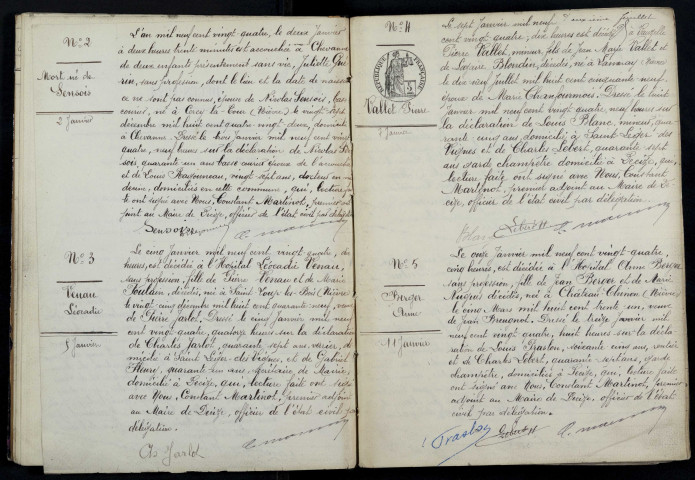 N° 2
Mort né de
Sensois
2 Janvier
L'an mil neuf cent vingt quatre, le deux Janvier
à deux heures trente minutes est accouchée à Chevannes
de deux enfants présentement sans vie, Juliette
sans profession, dont le lieu et la date de naissance
ne sont pas connus, épouse de Nicolas Sensois,
né à Cercy la Tour (Nièvre) le vingt six
décembre mil huit cent quatre vingt deux, domiciliés
à Chevannes. Dressé le trois Janvier mil neuf cent vingt
quatre, neuf heures sur la déclaration de Nicolas
quarante et un ans
et de Louis Ragonneau, vingt sept ans, docteur en
domiciliés en cette commune, qui, lecture faite
ont signé avec Nous, Constant Martinot, premier adjoint
au Maire de Decize, officier de l'état civil par délégation
N° 3
Venau
Léocadie
5 Janvier
Le cinq Janvier mil neuf cent vingt quatre,
heures, est décédée à l'Hôpital Léocadie Venau,
sans profession, fille de Pierre Venau et de Marie
Poulain, décédés, née à Saint Loup des Bois (Nièvre)
le vingt cinq décembre mil huit cent quarante neuf, veuve
de Pierre Jarlot. Dressé le cinq Janvier mil neuf
cent vingt quatre, quatorze heures sur la déclaration
de Charles Jarlot, quarante sept ans,
domicilié à Saint Léger des Vignes, et de Gabriel
Fleury, quarante un ans, secrétaire de Mairie,
domicilié à Decize, qui, lecture faite ont signé
avec Nous, Constant Martinot, premier adjoint
au Maire de Decize, officier de l'état civil par
délégation.
Ch Jarlot
N° 4
RÉPUBLIQUE FRANÇAISE
Vallet Pierre
7 Janvier
Le sept Janvier mil neuf
cent vingt quatre, dix heures est décédé
Pierre Vallet, mineur, fils de Jean Marie Vallet et
de Lazarine Blondin, décédés, né à
le dix neuf Juillet mil huit cent cinquante neuf,
époux de Marie Champonnois. Dressé le huit
Janvier mil neuf cent vingt quatre, neuf heures sur
la déclaration de Louis Blanc, mineur,
cinq ans domicilié à Saint Léger des
Vignes et de Charles Lebert, quarante sept
ans garde champêtre domicilié à Decize, qui,
lecture faite, ont signé avec Nous, Constant
Martinot, premier adjoint au Maire de
Decize, officier de l'état civil par délégation.
Blanc Lebert
N° 5
Berger
Anne
11 Janvier
Le onze Janvier mil neuf cent vingt quatre,
cinq heures, est décédée à l'Hôpital Anne Berger
sans profession, fille de Jean Berger et de Marie
décédés, née à Château Chinon (Nièvre)
le cinq Mars mil huit cent trente un, veuve
de Jean Brugnot. Dressé le treize janvier mil
neuf cent vingt quatre, huit heures sur la
déclaration de Louis Traston, soixante cinq ans, rentier
et de Charles Lebert, quarante sept ans, garde
champêtre, domiciliés à Decize, qui, lecture faite
ont signé avec Nous, Constant Martinot, premier
adjoint au Maire de Decize, officier de l'état
civil par délégation.
Traston Lebert